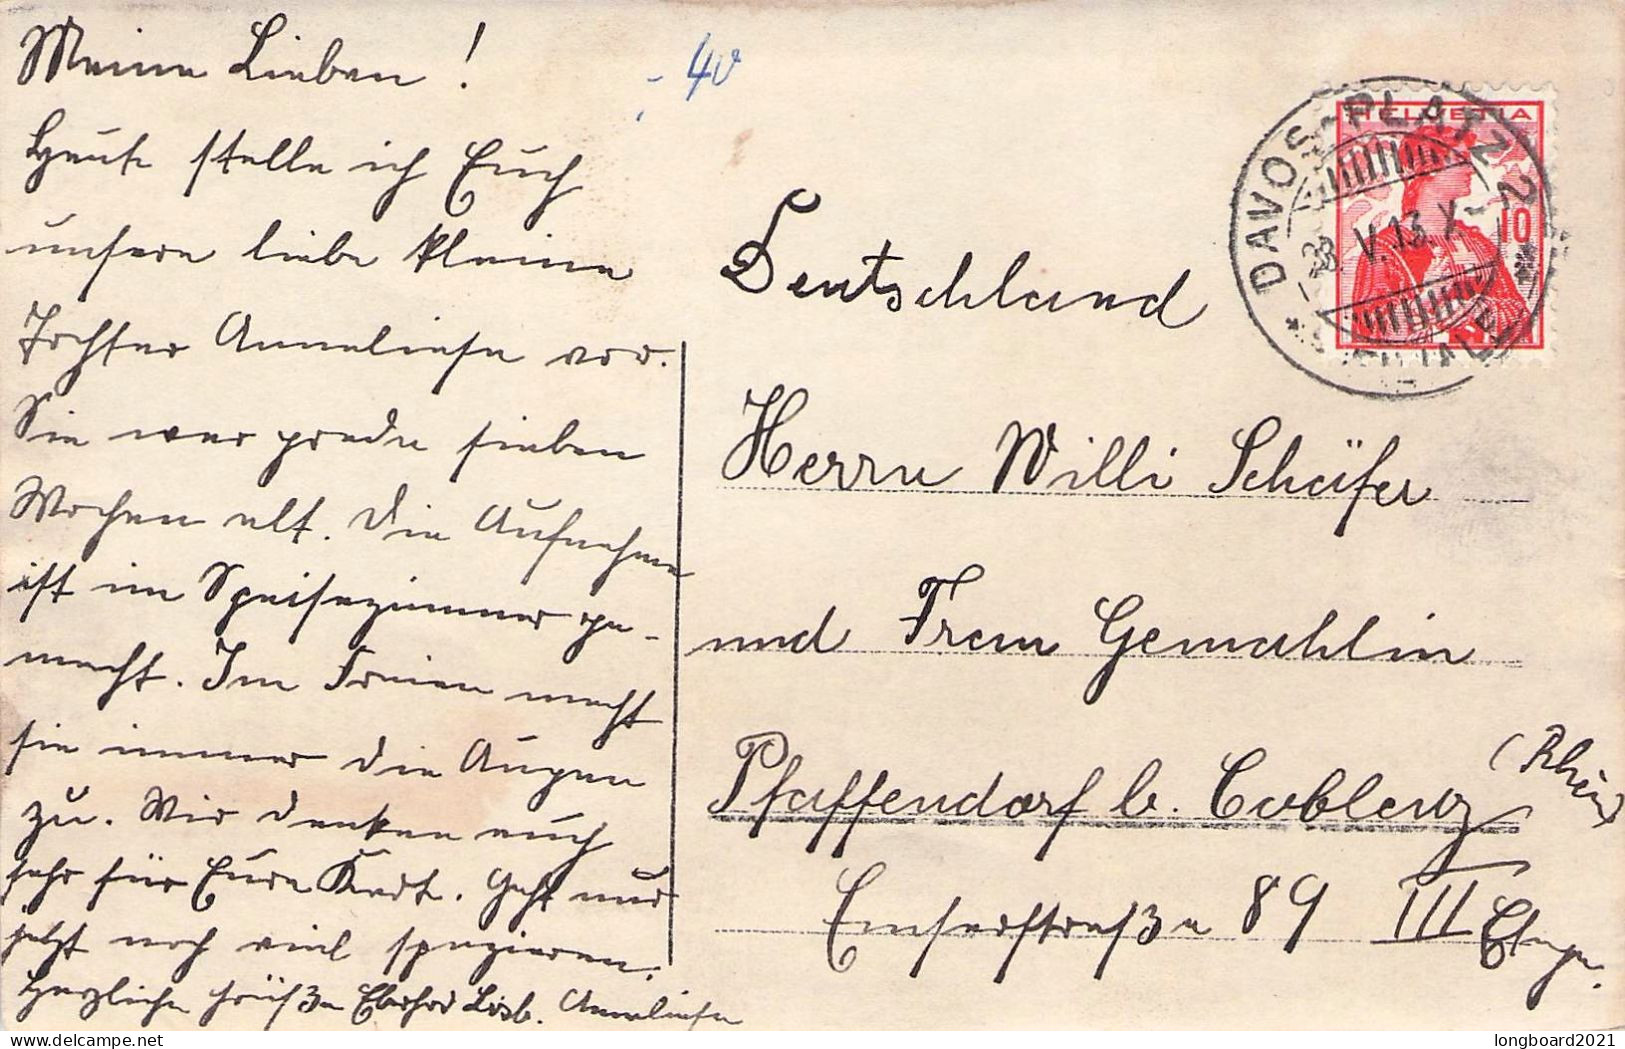 Meine Lieben!
Heute stelle ich Euch
unsere liebe kleine
Tochter Anneliese vor.
Sie war grade sieben
Wochen alt. Die Aufnahme
ist im Speisezimmer ge-
macht. Im Freien macht
sie immer die Augen
zu. Wir danken auch
sehr für Eure Karte. Geht nur
jetzt noch viel spazieren.
Herzliche Grüße Eberhard Lisb. Anneliese
- 40
HELVETIA
10
DAVOS-PLATZ 2
V. 13. X
Deutschland
Herrn Willi Schäfer
und Frau Gemahlin
Pfaffendorf b. Coblenz (Rhein)
Emserstraße 89 III Etage.
delcampe.net
longboard2021